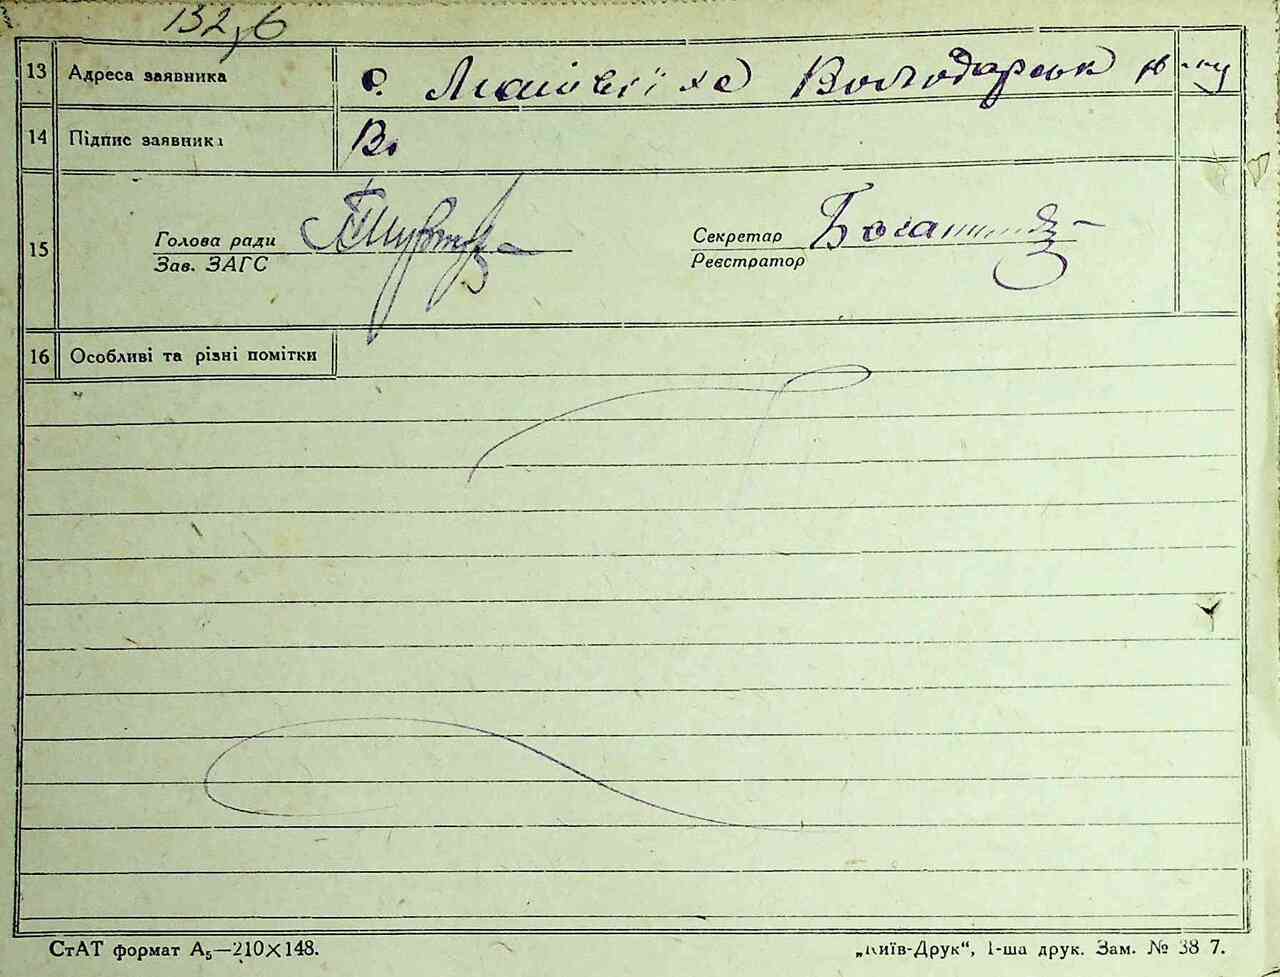 132,б
13 Адреса заявника с. Матвіїха Володарськ р-ну
14 Підпис заявника Ві
15 Голова ради Секретар
Зав. ЗАГС Реєстратор
16 Особливі та різні помітки
СтАТ формат А₅—210×148. „Київ-Друк“, 1-ша друк. Зам. № 38 7.